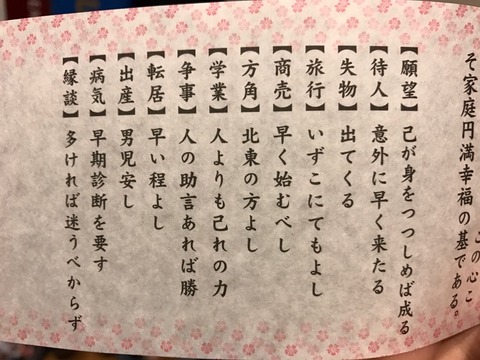 この心こ
そ家庭円満幸福の基である。
【願望】己が身をつつしめば成る
【待人】意外に早く来たる
【失物】出てくる
【旅行】いずこにてもよし
【商売】早く始むべし
【方角】北東の方よし
【学業】人よりも己れの力
【争事】人の助言あれば勝
【転居】早い程よし
【出産】男児安し
【病気】早期診断を要す
【縁談】多ければ迷うべからず